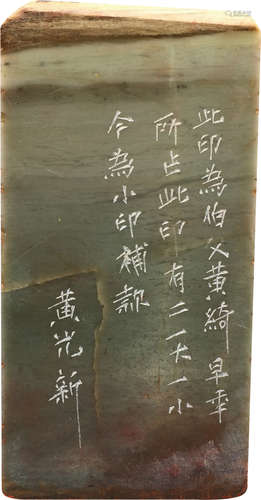 此印為伯父黄綺早年
所占此印有二一大一小
今為小印補款
黄光新